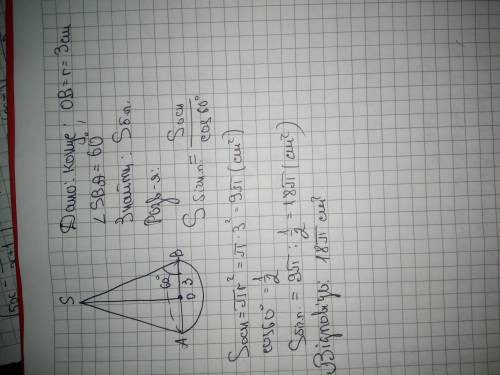 Дано: конус; OB = r = 3 см
∠SBA = 60°
Знайти: Sб.п.
Розв-я:
Sбіч.п. = Sосн / cos 60°
S
60°
A
O
3
B
Sосн = πr² = π · 3² = 9π (см²)
cos 60° = 1/2
Sб.п. = 9π : 1/2 = 18π (см²)
Відповідь: 18π см²